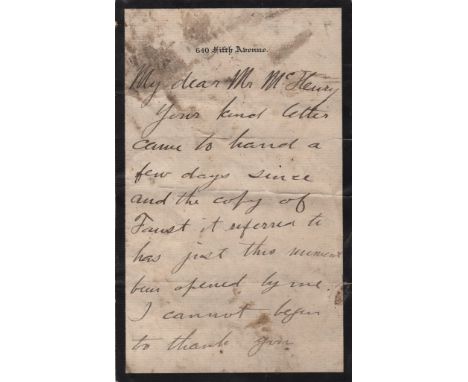 640 Fifth Avenue.
My dear Mr McHenry
Your kind letter
came to hand a
few days since
and the copy of
Faust it referred to
has just this moment
been opened by me.
I cannot begin
to thank you